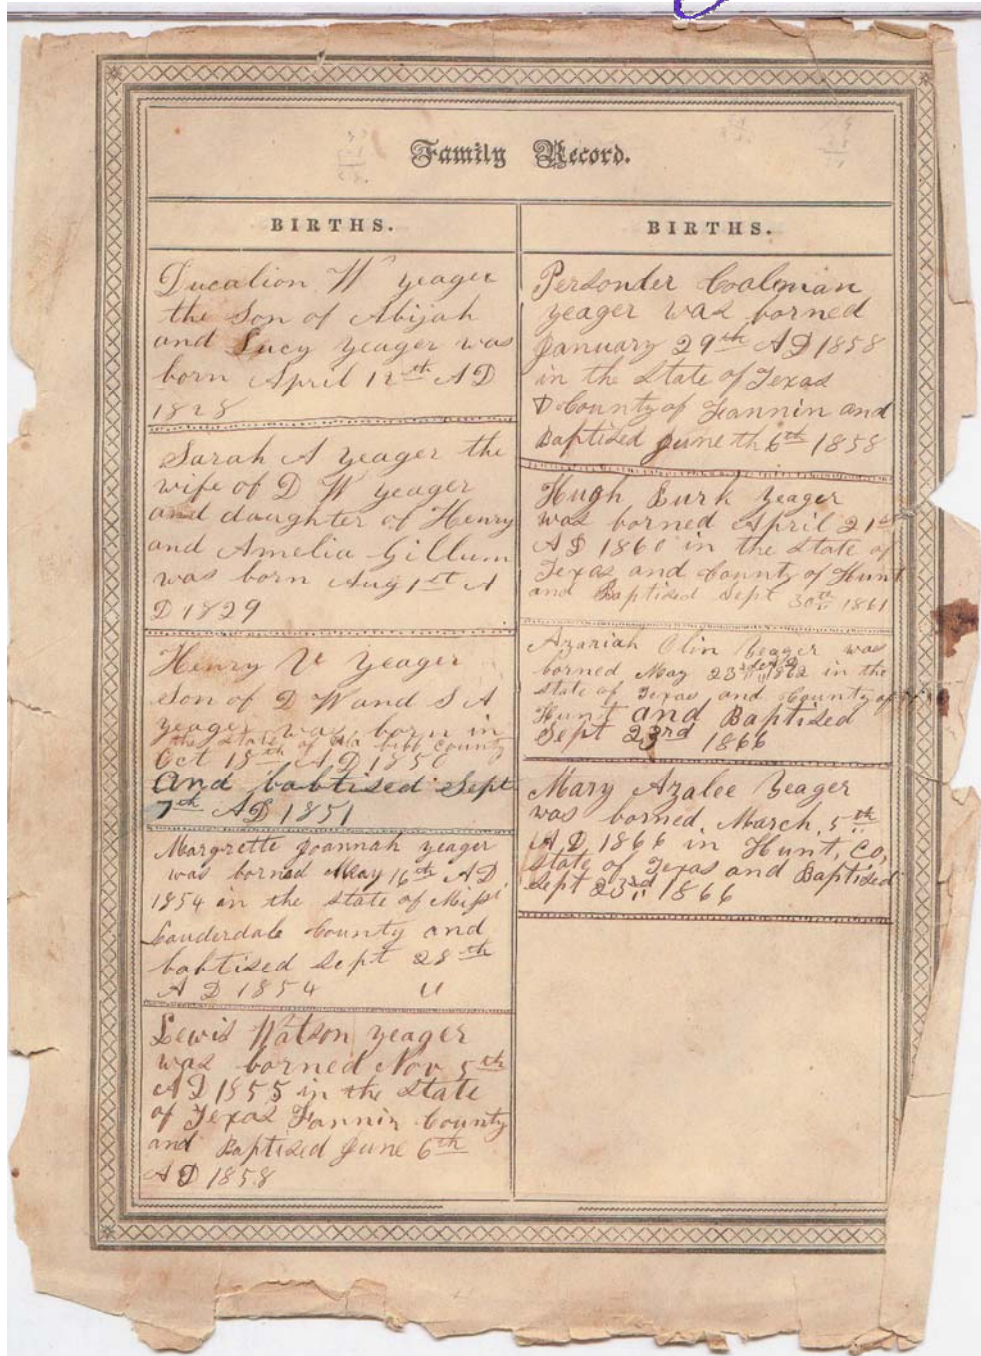 Family Record.
BIRTHS.
Ducalion W yeager
the Son of Abijah
and Lucy yeager was
born April 12th AD
1828
Sarah A yeager the
wife of D W yeager
and daughter of Henry
and Amelia Gillum
was born Aug 1st A
D 1829
Henry V yeager
Son of D W and S A
yeager was born in
the State of Ala bibb County
Oct 18th A D 1850
and babtised Sept
7th AD 1851
Margrette Joannah yeager
was borned May 16th AD
1854 in the state of Missi
Lauderdale County and
babtised Sept 28th
A D 1854
Lewis Watson yeager
was borned Nov 5th
AD 1855 in the State
of Texas Fannin County
and Baptised June 6th
AD 1858
BIRTHS.
Personder Coaleman
yeager was borned
January 29th AD 1858
in the State of Texas
County of Feannin and
Baptised June th 6th 1858
Hugh Burk Yeager
was borned April 21st
AD 1860 in the State of
Texas and County of Hunt
and Baptised Sept 30th 1861
Azariah Olin Yeager was
borned May 23rd 1862 in the
State of Texas and County of
Hunt and Baptised
Sept 23rd 1866
Mary Azalee Yeager
was borned, March, 5th
A,D, 1866 in Hunt, Co,
State of Texas and Baptised
Sept 23rd 1866